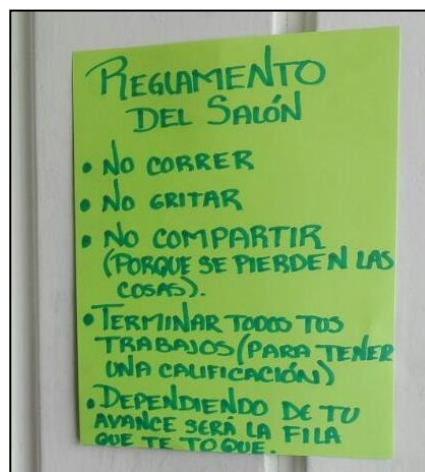 REGLAMENTO
DEL SALÓN
• NO CORRER
• NO GRITAR
• NO COMPARTIR
(PORQUE SE PIERDEN LAS
COSAS).
• TERMINAR TODOS TUS
TRABAJOS (PARA TENER
UNA CALIFICACIÓN)
• DEPENDIENDO DE TU
AVANCE SERÁ LA FILA
QUE TE TOQUE.